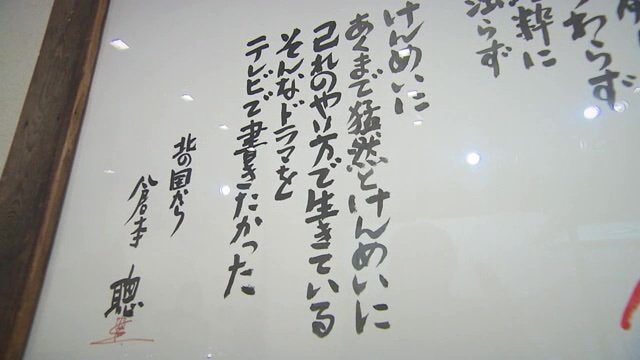 わらず
粋に
濁らず
けんめいに
あくまで猛然とけんめいに
己れのやり方で生きている
そんなドラマを
テレビで書きたかった
北の国から
倉本 聰